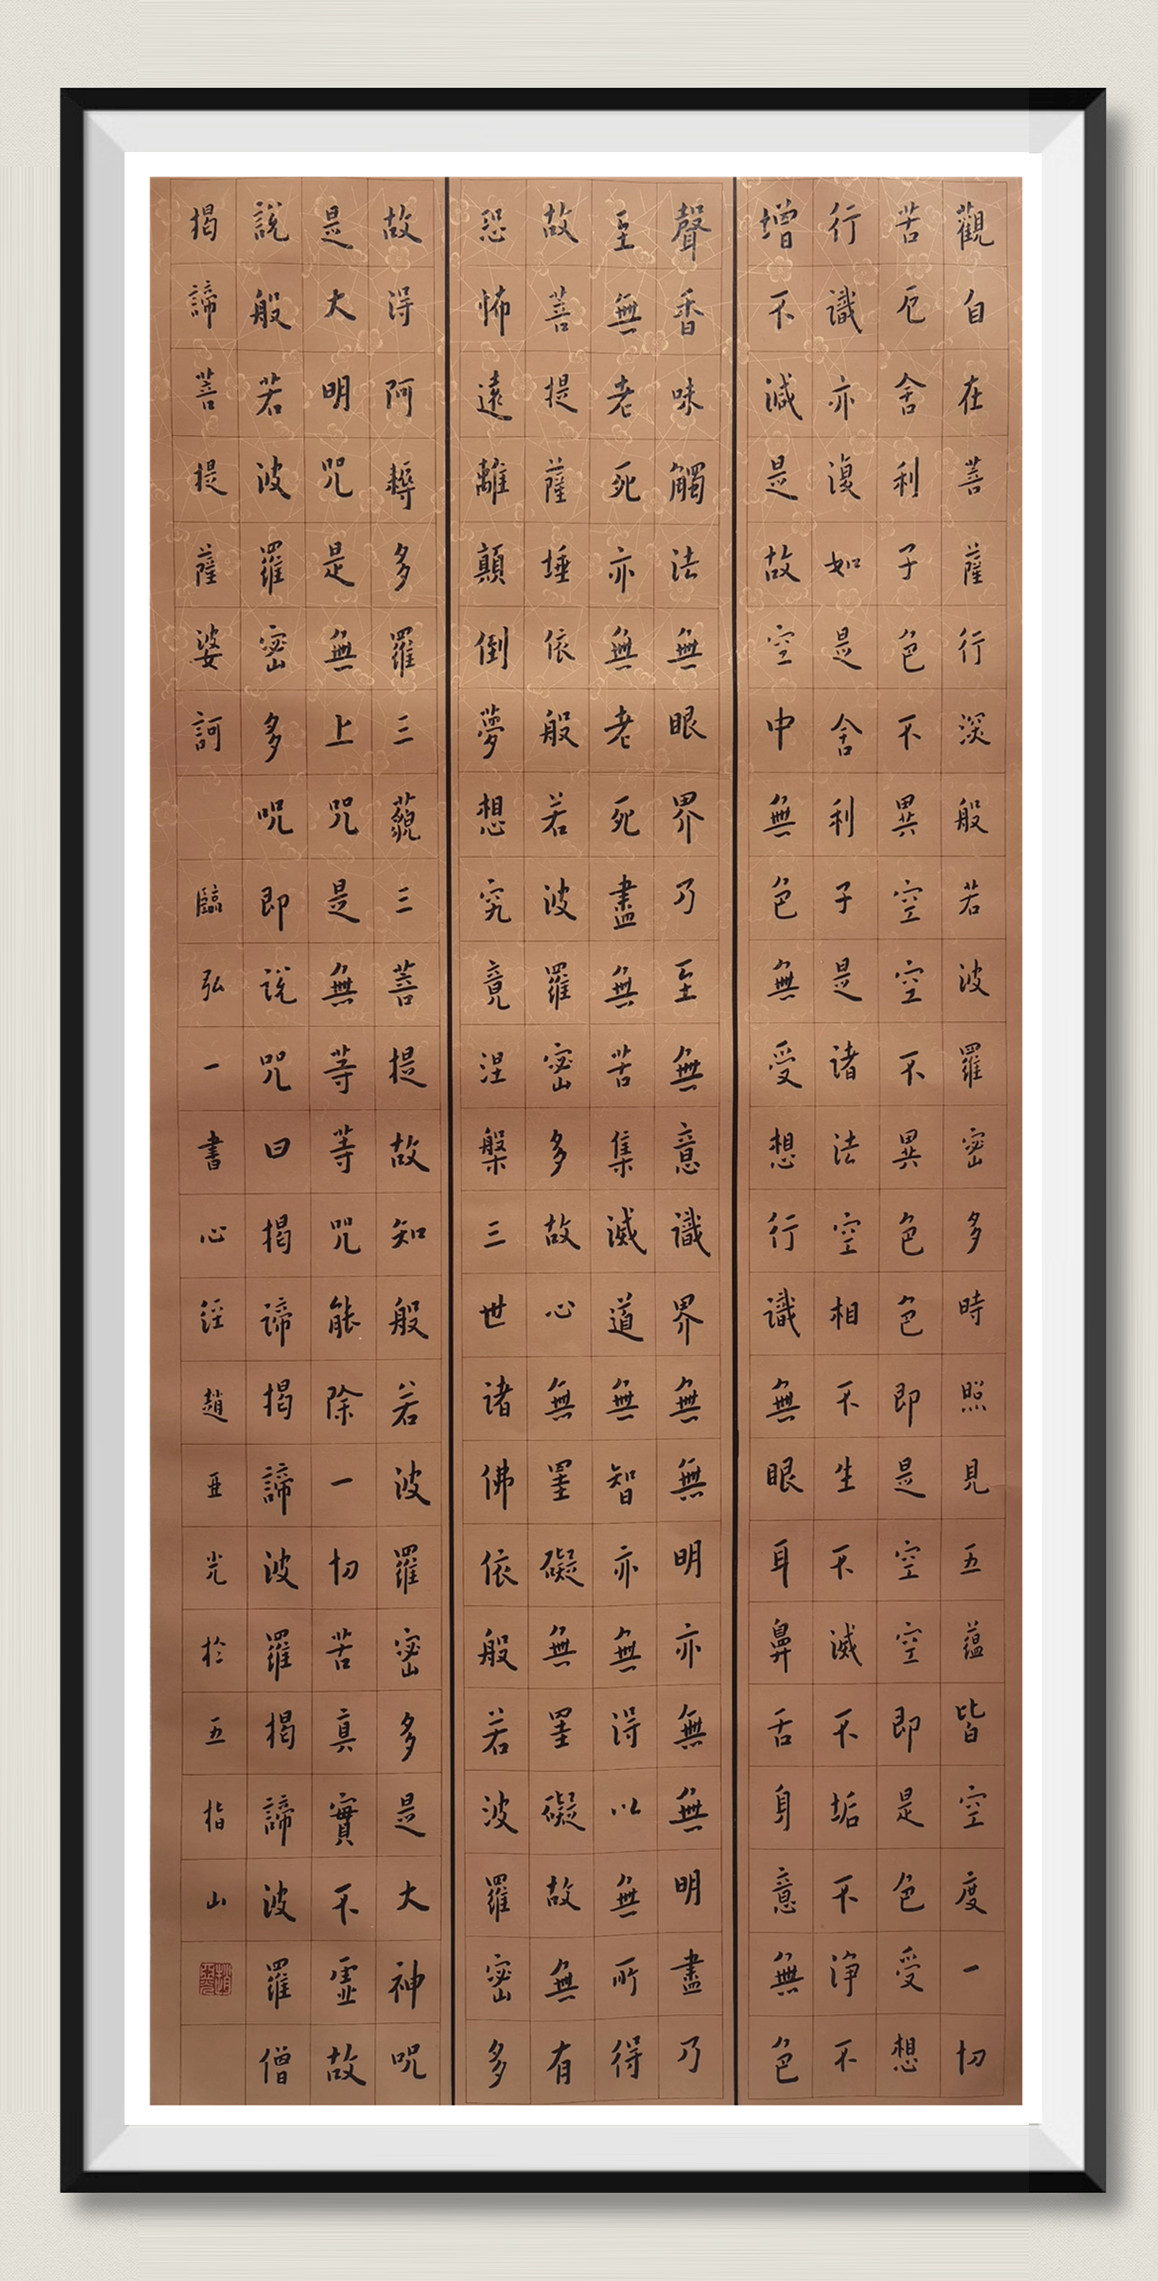 觀自在菩薩行深般若波羅密多時照見五蘊皆空度一切
苦厄舍利子色不異空空不異色色即是空空即是色受想
行識亦復如是舍利子是諸法空相不生不滅不垢不淨不
增不減是故空中無色無受想行識無眼耳鼻舌身意無色
聲香味觸法無眼界乃至無意識界無無明亦無無明盡乃
至無老死亦無老死盡無苦集滅道無智亦無得以無所得
故菩提薩埵依般若波羅密多故心無罣礙無罣礙故無有
恐怖遠離顛倒夢想究竟涅槃三世諸佛依般若波羅密多
故得阿耨多羅三藐三菩提故知般若波羅密多是大神咒
是大明咒是無上咒是無等等咒能除一切苦真實不虛故
說般若波羅密多咒即說咒曰揭諦揭諦波羅揭諦波羅僧
揭諦菩提薩婆訶 臨弘一書心經趙亞光於五指山